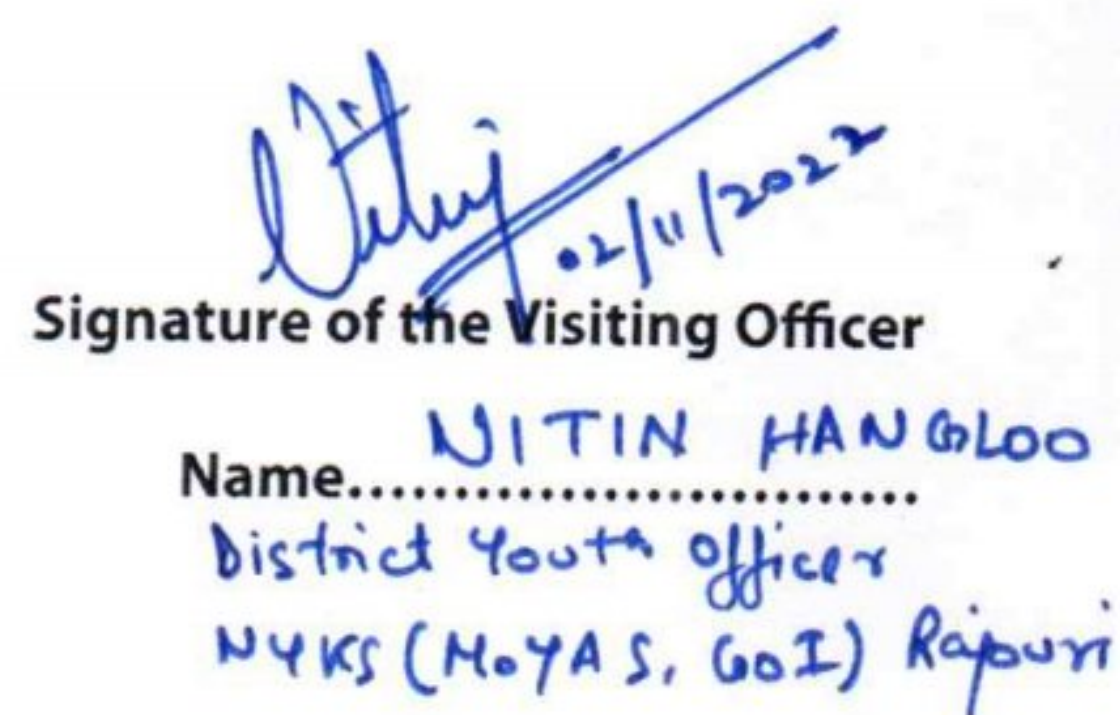 Nitin
02/11/2022
Signature of the Visiting Officer
NITIN HANGLOO
Name...........................
District Youth Officer
NYKS (MoYAS, GoI) Rajouri